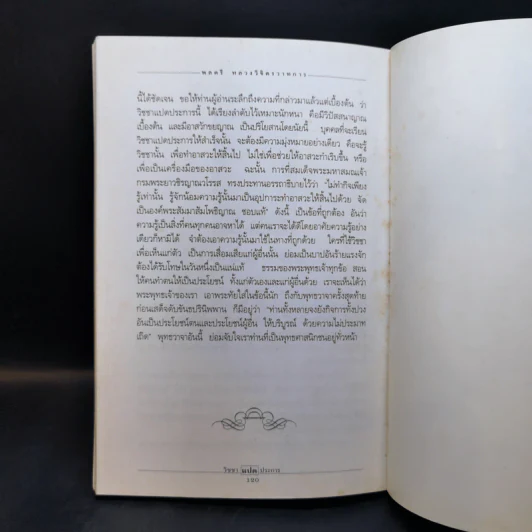 พลตรี หลวงวิจิตรวาทการ
นี้ได้ชัดเจน ขอให้ท่านผู้อ่านระลึกถึงความที่กล่าวมาแล้วแต่เบื้องต้น ว่า
วิชชาแปดประการนี้ ได้เรียงลำดับไว้เหมาะนักหนา คือมีวิปัสสนาญาณ
เบื้องต้น และมีอาสวักขยญาณ เป็นปริโยสานโดยนัยนี้ บุคคลที่จะเรียน
วิชชาแปดประการให้สำเร็จนั้น จะต้องมีความมุ่งหมายอย่างเดียว คือจะรู้
วิชชานั้น เพื่อทำอาสวะให้สิ้นไป ไม่ใช่เพื่อช่วยให้อาสวะกำเริบขึ้น หรือ
เพื่อเป็นเครื่องมือของอาสวะ ฉะนั้น การที่สมเด็จพระมหาสมณเจ้า
กรมพระยาวชิรญาณวโรรส ทรงประทานอรรถาธิบายไว้ว่า "ไม่ทำกิจเพียง
รู้เท่านั้น รู้จักน้อมความรู้นั้นมาเป็นอุปการะทำอาสวะให้สิ้นไปด้วย จัด
เป็นองค์พระสัมมาสัมโพธิญาณ ชอบแท้" ดังนี้ เป็นข้อที่ถูกต้อง อันว่า
ความรู้เป็นสิ่งที่คนทุกคนอาจหาได้ แต่คนเราจะได้ดีโดยอาศัยความรู้อย่าง
เดียวก็หามิได้ จำต้องเอาความรู้นั้นมาใช้ในทางที่ถูกด้วย ใครที่ใช้วิชชา
เพื่อเห็นแก่ตัว เป็นการเสื่อมเสียแก่ผู้อื่นนั้น ย่อมเป็นบาปอันร้ายแรงจัก
ต้องได้รับโทษในวันหนึ่งเป็นแน่แท้ ธรรมของพระพุทธเจ้าทุกข้อ สอน
ให้คนทำตนให้เป็นประโยชน์ ทั้งแก่ตัวเองและแก่ผู้อื่นด้วย เราจะเห็นได้ว่า
พระพุทธเจ้าของเรา เอาพระทัยใส่ในข้อนี้นัก ถึงกับพุทธวาจาครั้งสุดท้าย
ก่อนเสด็จดับขันธปรินิพพาน ก็มีอยู่ว่า "ท่านทั้งหลายจงยังกิจการทั้งปวง
อันเป็นประโยชน์ตนและประโยชน์ผู้อื่น ให้บริบูรณ์ ด้วยความไม่ประมาท
เถิด" พุทธวาจาอันนี้ ย่อมจับใจเราท่านที่เป็นพุทธศาสนิกชนอยู่ทั่วหน้า
วิชชา แปด ประการ
120